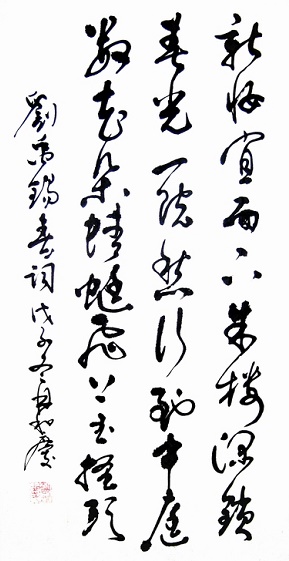 新妝宜面下朱樓深鎖
春光一院愁行到中庭
數花朵蜻蜓飛上玉搔頭
劉禹錫春詞戊子冬